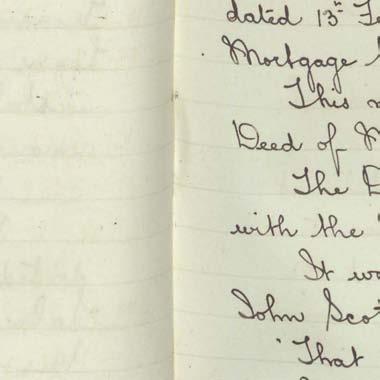 dated 13th Fe
Mortgage
This
Deed of M
The D
with the
It wa
John Scot
"That